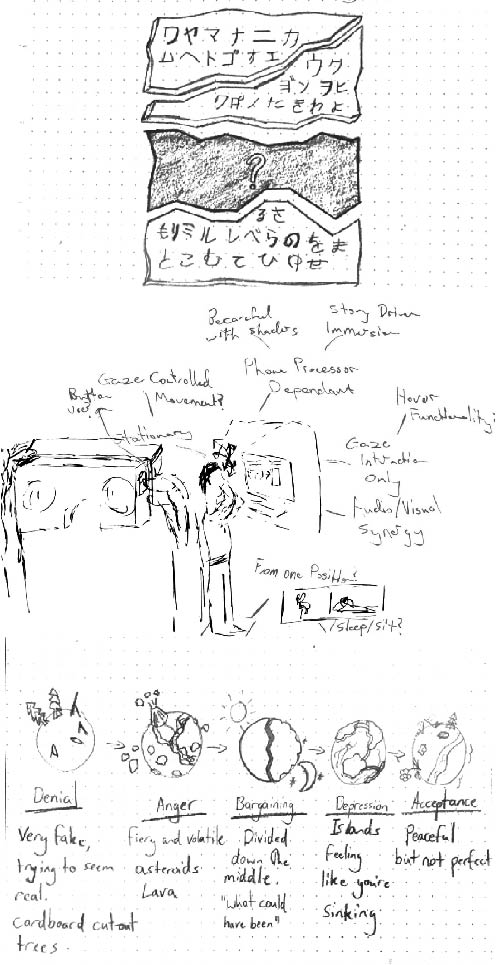 ワヤマナニカ
ムヘトゴオエ
ウク
ゴンヲヒ
ワポノたきわよ
?
るさ
もりミルしべらのをま
とこむてひゆせ
Be careful
with shaders
Story Driven
Immersion
Phone Processor
Dependant
Gaze Controlled
Movement?
Button
Use?
Stationary
Hover
Functionality?
Gaze
Interaction
Only
Audio/Visual
Synergy
From one Position?
/sleep/sit?
Denial
Very fake,
trying to seem
real.
cardboard cutout
trees.
Anger
Fiery and volatile
asteroids
Lava
Bargaining
Divided
down the
middle.
"What could
have been"
Depression
Islands
Feeling
like you're
Sinking
Acceptance
Peaceful
but not perfect